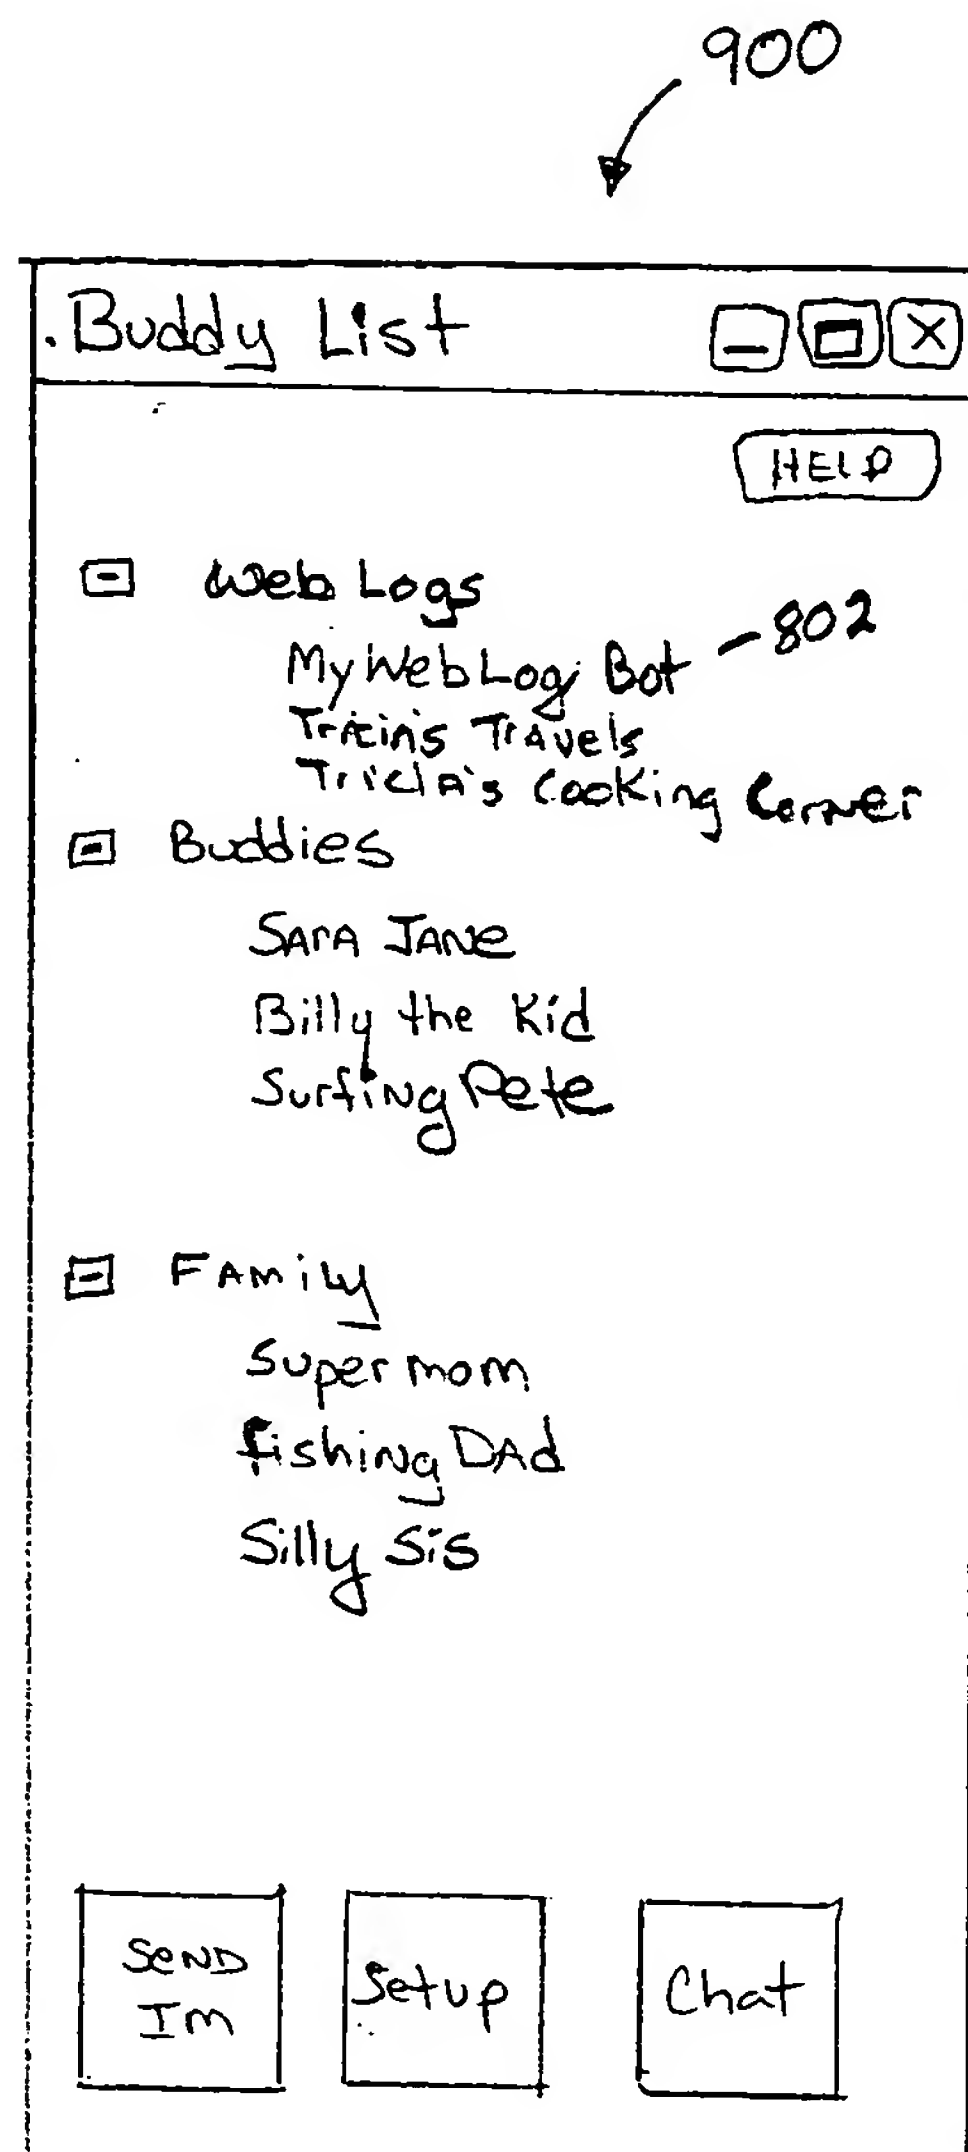 900
Buddy List
HELP
Web Logs
My Web Log Bot - 802
Travels
Tricia's Cooking Corner
Buddies
Sara Jane
Billy the Kid
Surfing Pete
Family
Super mom
fishing Dad
Silly Sis
Send
Im
Setup
Chat